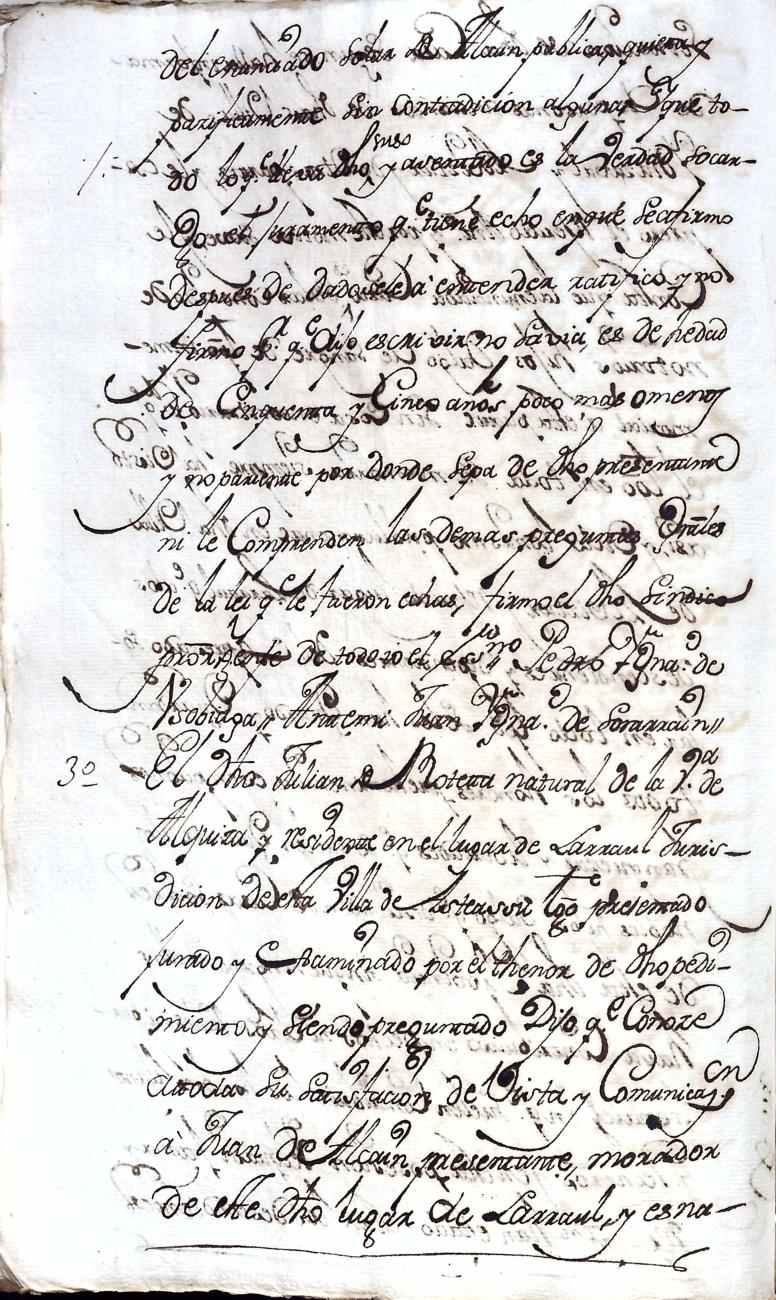 del enunciado Solar de Alcain publica, quieta, y
pacificamente sin contradicion alguna Y que to-
do lo q.e lleva dho suso y asentado es la Verdad so car-
go el juramento q.e tiene echo en que se afirmo
despues de dadosele à entender ratifico, y no
firmo p.r q.e dijo escrivir no savia, es de hedad
de Cinquenta y Cinco años poco mas o menos
y no pariente por donde sepa de dho presentante
ni le Comprenden las demas preguntas Grãles
de la lei q.e le fueron echas, firmo el dho Sindico
prõr de todo io el ess.no Pedro Ygna.o de
Vsobiaga, Antemi Juan Ygna.o de Sorarrain
3o El dho Julian de Roteta natural de la V.a de
Alquiza y residente en el lugar de Larraul Juris-
dicion de esta Villa de Asteassu tgo presentado
jurado y examinado por el thenor de dho pedi-
miento, y siendo preguntado Dijo, q.e Conoce
atoda su satisfacion de Vista y Comunicacn
à Juan de Alcain, presentante, morador
de este dho lugar de Larraul, y es na-